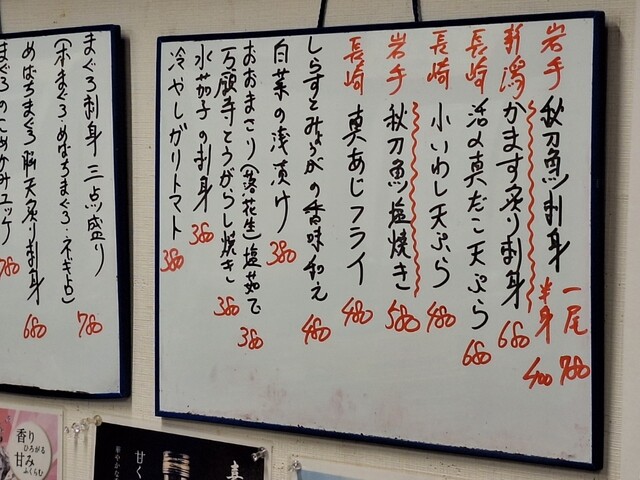 岩手 秋刀魚刺身 一尾 780 半身 400
新潟 かます炙り刺身 680
長崎 活〆真だこ天ぷら 680
長崎 小いわし天ぷら 480
岩手 秋刀魚塩焼き 580
長崎 真あじフライ 480
しらすとみょうがの香味和え 480
白菜の浅漬け 380
おおまさり(落花生)塩茹で 380
万願寺とうがらし焼き 380
水茄子の刺身 380
冷やしガリトマト 380
まぐろ刺身 三点盛り 780
(本まぐろ・めばちまぐろ・ネギトロ)
めばちまぐろ脳天炙り刺身 680
まぐろのこめかみユッケ 780
香り
ひろがる
甘み
ふくらむ
甘く
華やかな
真